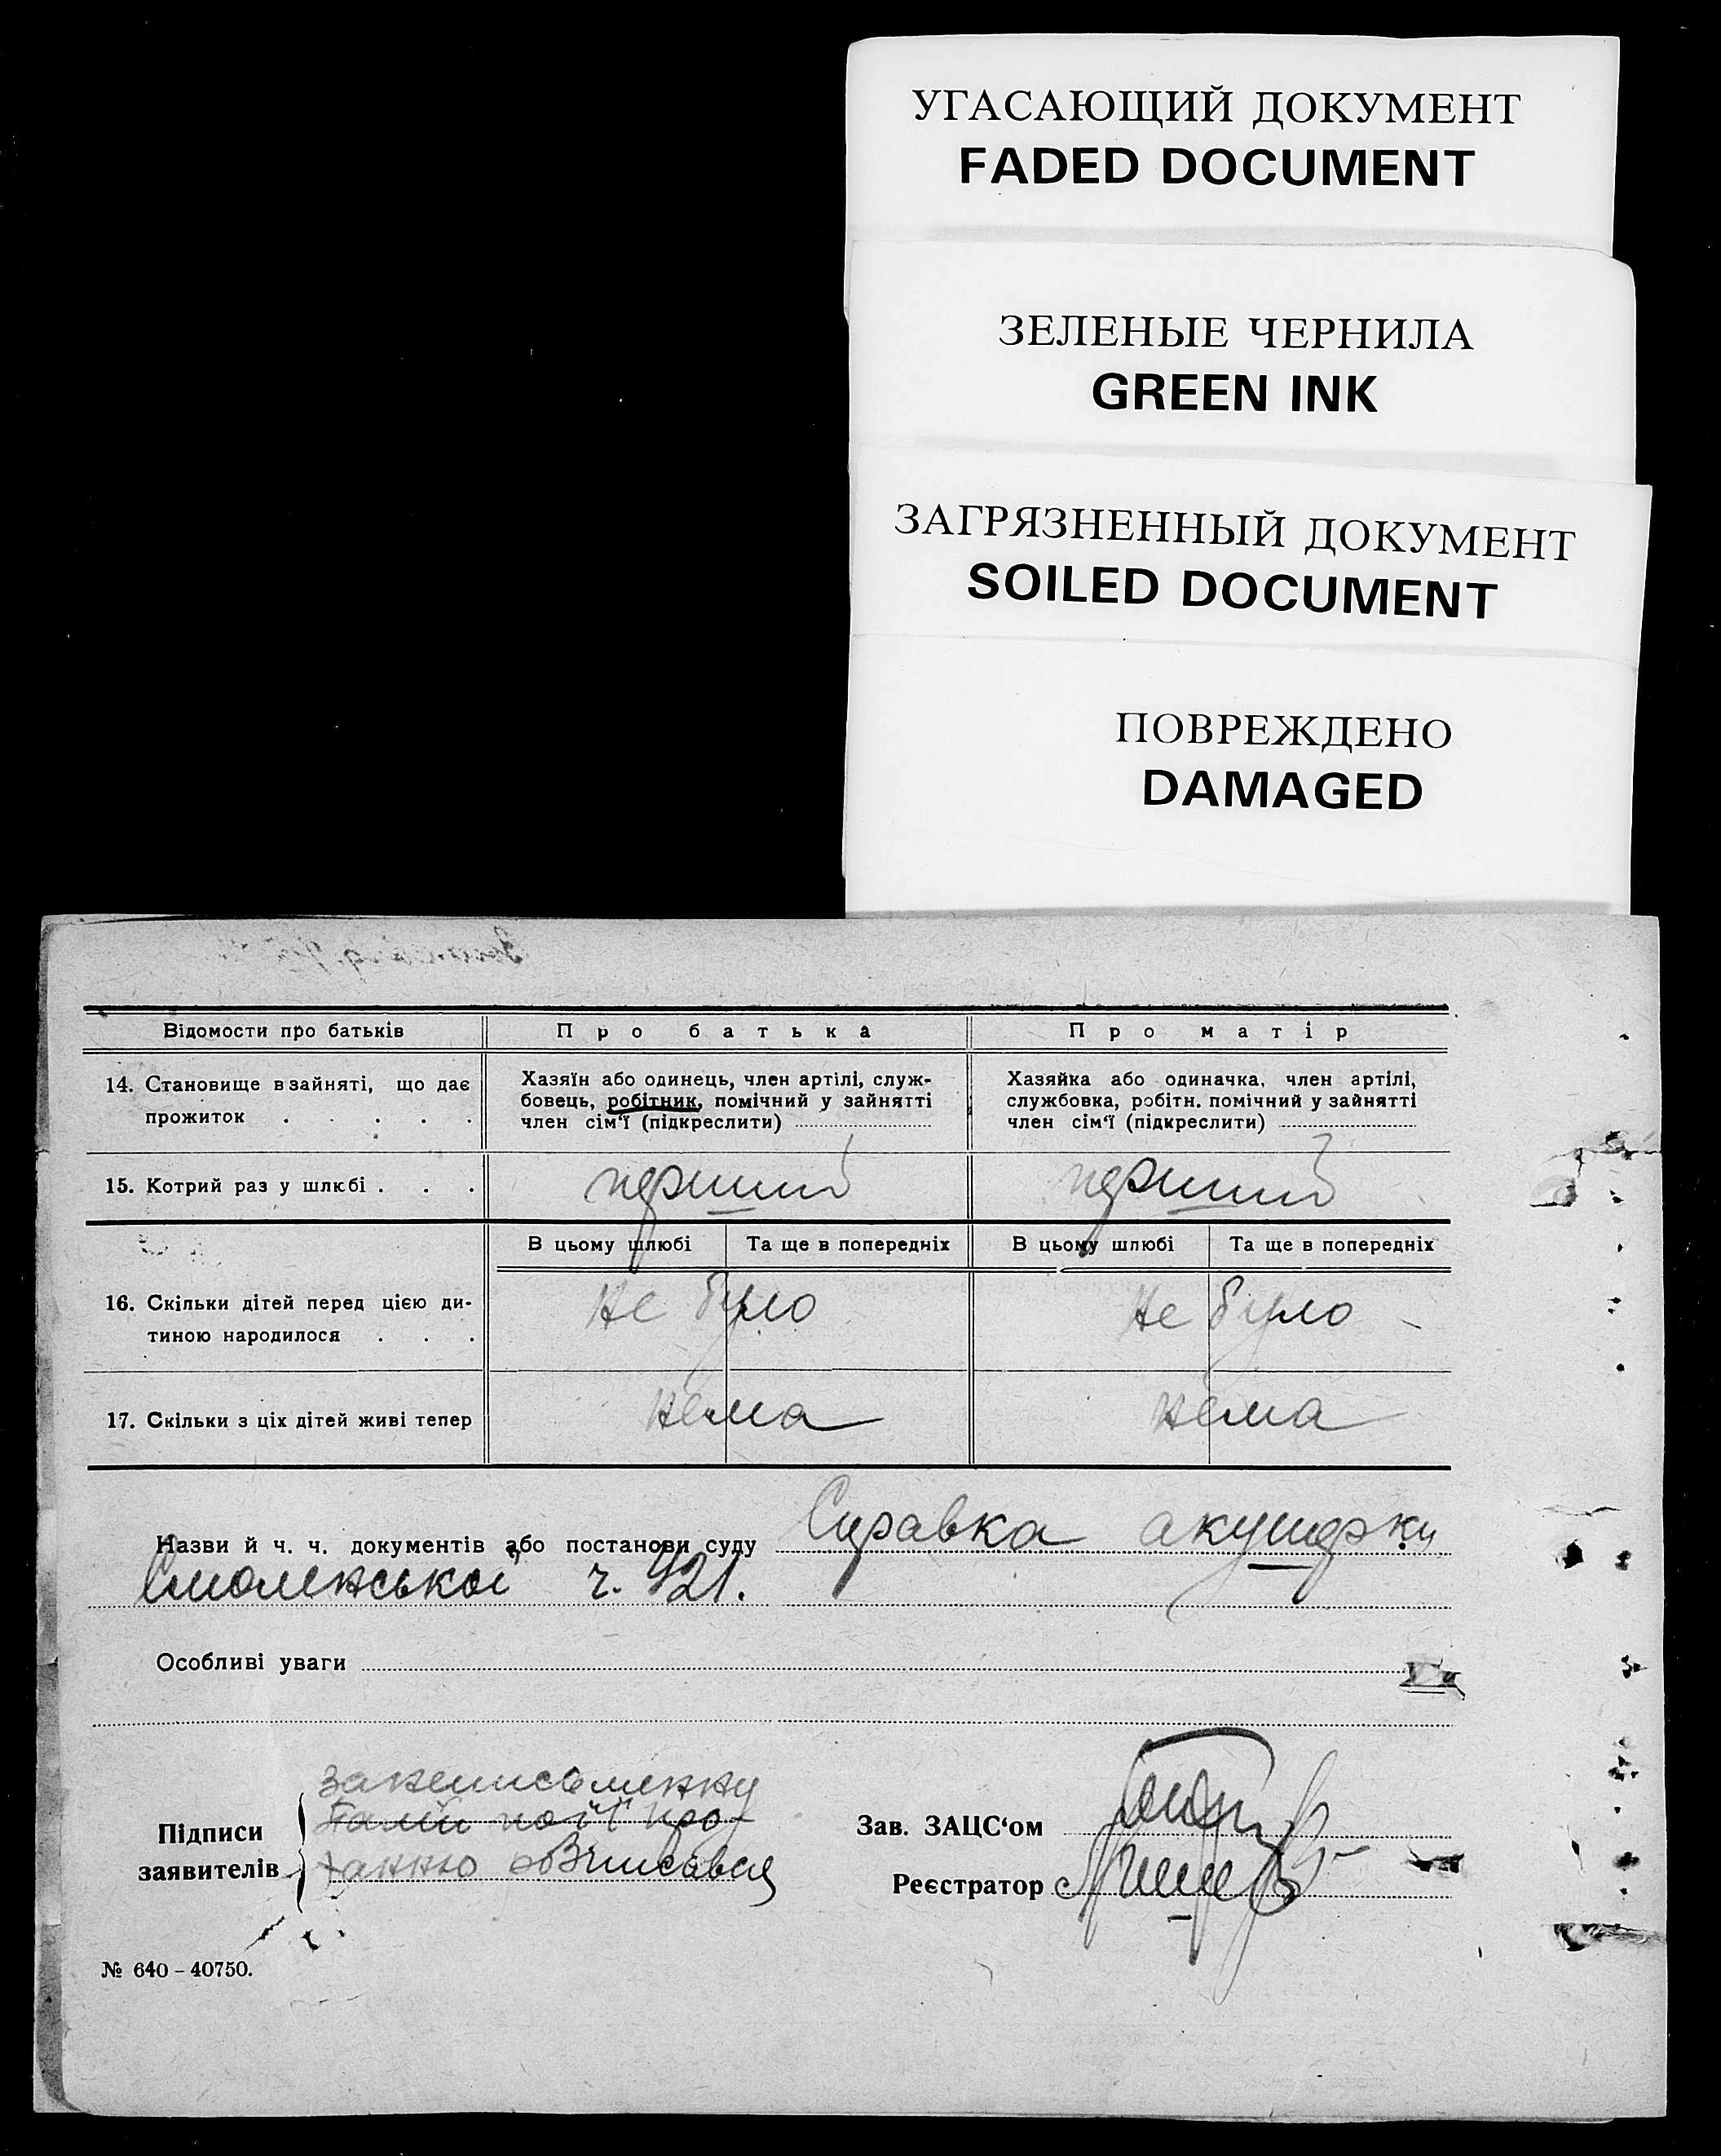 УГАСАЮЩИЙ ДОКУМЕНТ
FADED DOCUMENT
ЗЕЛЕНЫЕ ЧЕРНИЛА
GREEN INK
ЗАГРЯЗНЕННЫЙ ДОКУМЕНТ
SOILED DOCUMENT
ПОВРЕЖДЕНО
DAMAGED
Відомости про батьків
Про батька
Про матір
14. Становище в зайняті, що дає
прожиток . . . . .
Хазяїн або одинець, член артілі, служ-
бовець, робітник, помічний у зайнятті
член сім'ї (підкреслити)
Хазяйка або одиначка, член артілі,
службовка, робітн. помічний у зайнятті
член сім'ї (підкреслити)
15. Котрий раз у шлюбі . . .
перший
перший
В цьому шлюбі
Та ще в попередніх
В цьому шлюбі
Та ще в попередніх
16. Скільки дітей перед цією ди-
тиною народилося . . .
не було
не було
17. Скільки з ціх дітей живі тепер
нема
нема
Назви й ч. ч. документів або постанови суду Справка акушерки
Смоленської ч. 421.
Особливі уваги
Підписи
заявителів
за неписьменну
Зав. ЗАЦС'ом
Реєстратор
№ 640 - 40750.